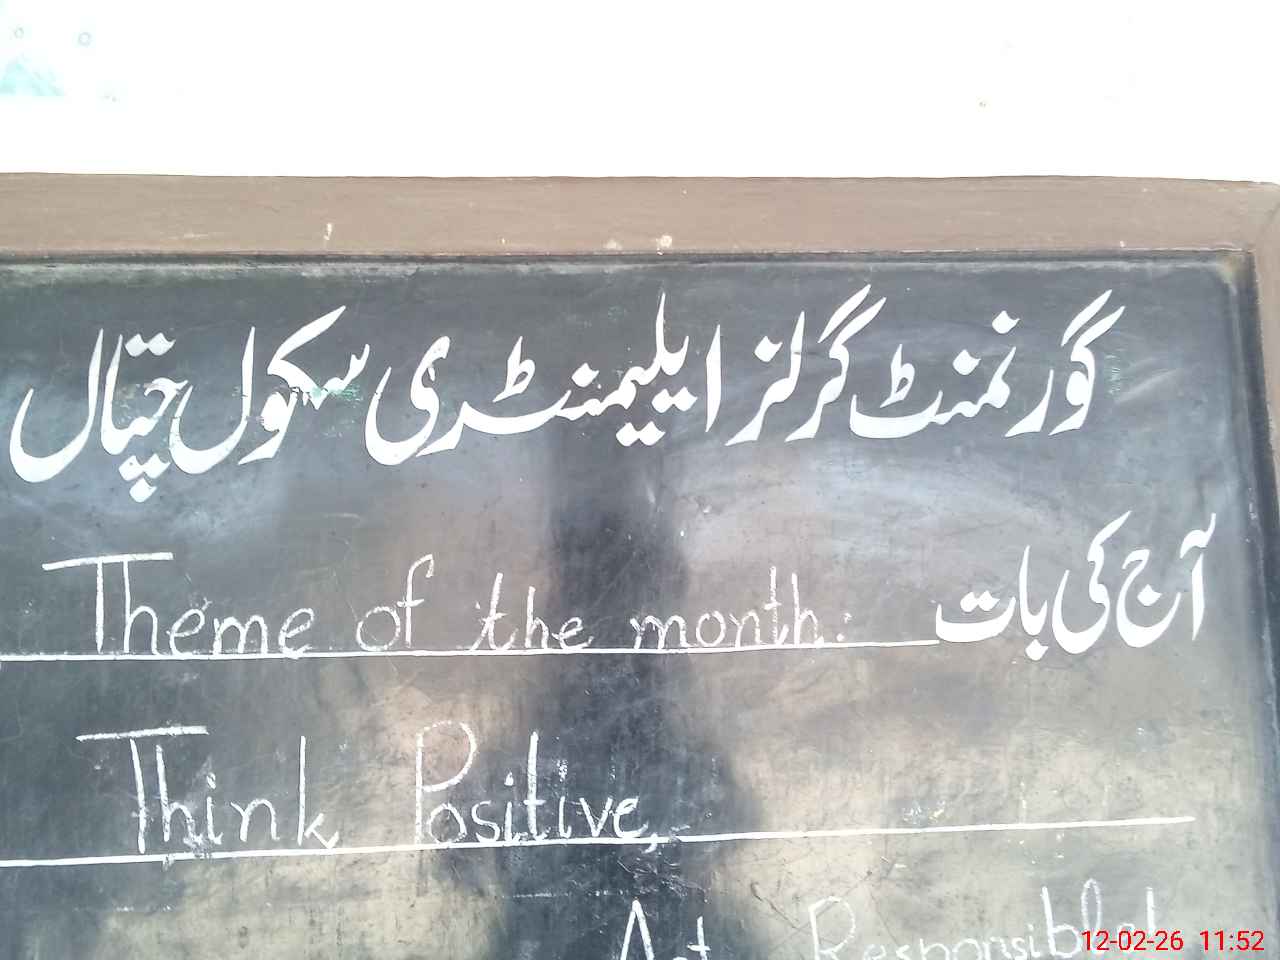 گورنمنٹ گرلز ایلیمنٹری سکول چپتال
آج کی بات
Theme of the month:
Think Positive,
Act Responsible!
12-02-26 11:52